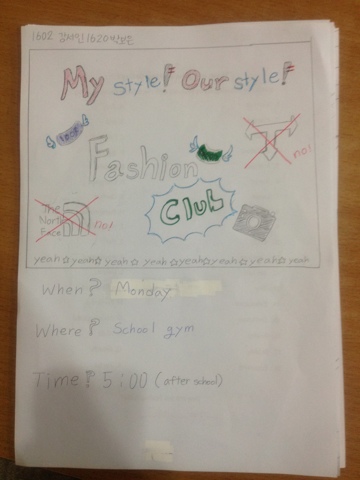 1602 강서인 1620 박보은
My style! Our style!
Fashion
no!
Club
The North Face
no!
yeah☆yeah☆yeah☆yeah☆yeah☆yeah☆yeah☆yeah
When? Monday
Where? School gym
Time? 5:00 (after school)